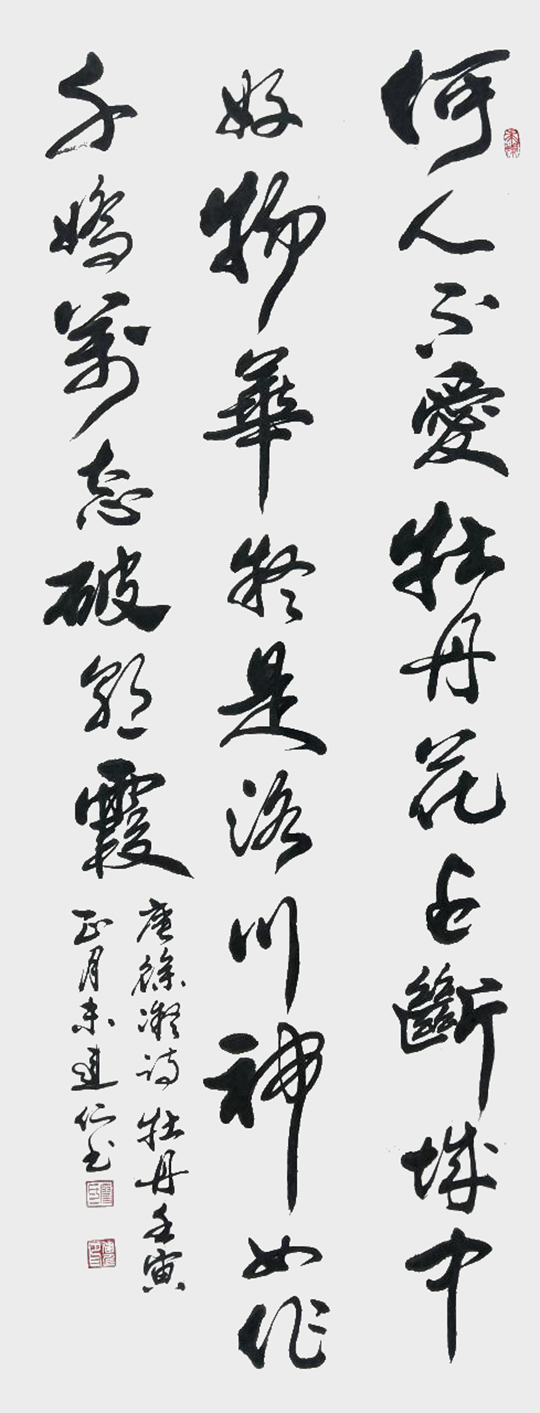 何人不愛牡丹花占斷城中
好物華疑是洛川神女作
千嬌萬态破朝霞
唐徐凝詩牡丹壬寅
正月末道仁书